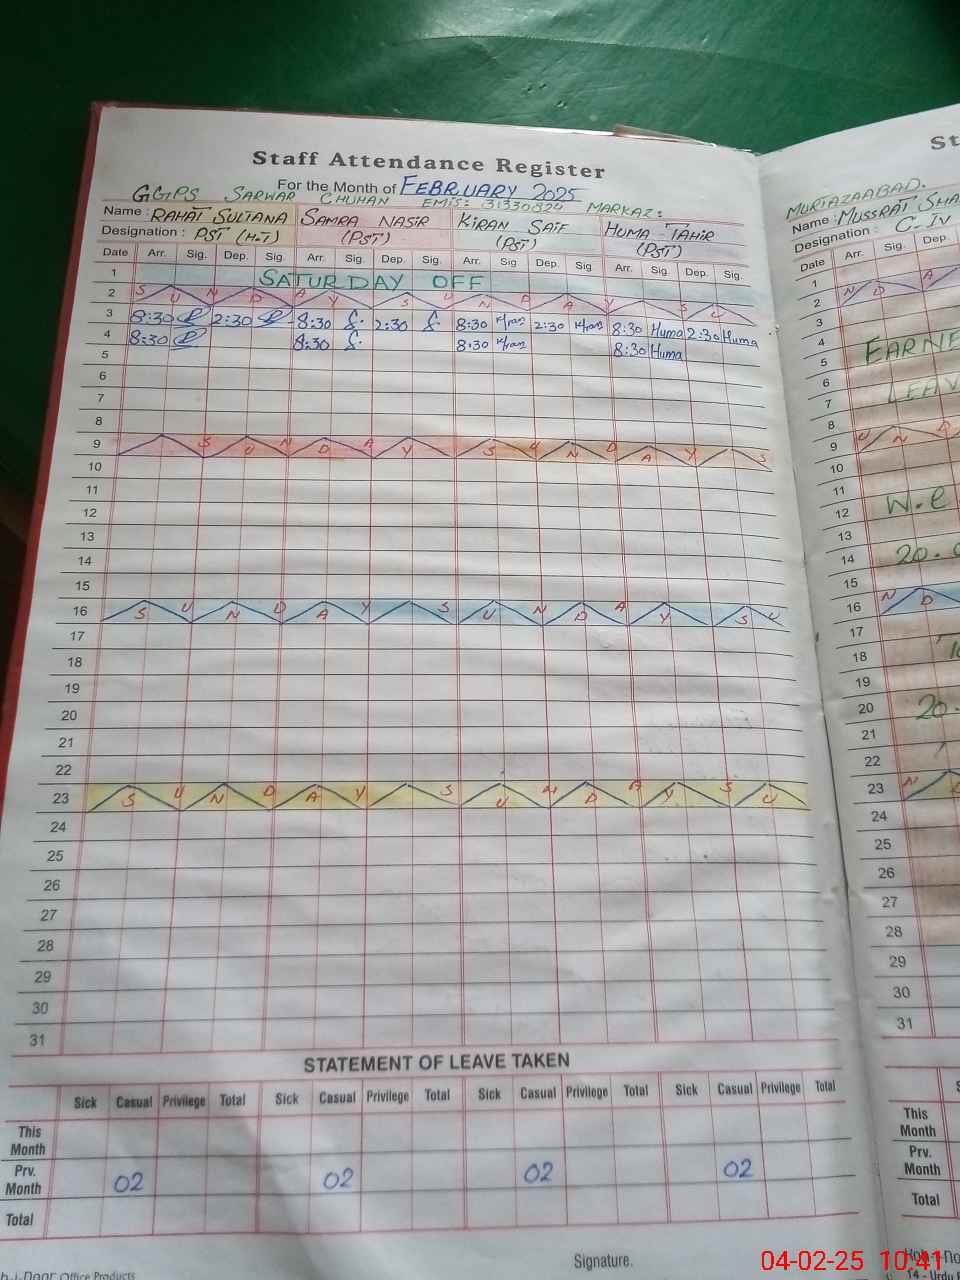 Staff Attendance Register
For the Month of FEBRUARY 2025
GGPS SARWAR CHUHAN EMIS: 31330824 MARKAZ: MURTAZAABAD.
Name : RAHAT SULTANA SAMRA NASIR KIRAN SAIF HUMA TAHIR
Designation : PST (H.T) (PST) (PST) (PST)
Date Arr. Sig. Dep. Sig. Arr. Sig. Dep. Sig. Arr. Sig Dep. Sig Arr. Sig. Dep. Sig.
1 SATURDAY OFF
2 S U N D A Y S U N D A Y S U
3 8:30 2:30 8:30 2:30 8:30 Kiran 2:30 Kiran 8:30 Huma 2:30 Huma
4 8:30 8:30 8:30 Kiran 8:30 Huma
5
6
7
8
9 S U N D A Y S U N D A Y S
10
11
12
13
14
15
16 S U N D A Y S U N D A Y S U
17
18
19
20
21
22
23 S U N D A Y S U N D A Y S U
24
25
26
27
28
29
30
31
STATEMENT OF LEAVE TAKEN
Sick Casual Privilege Total Sick Casual Privilege Total Sick Casual Privilege Total Sick Casual Privilege Total
This Month
Prv. Month 02 02 02 02
Total
Office Products
Signature.
Name : MUSSRAT
Designation : C-IV
Date Arr. Sig. Dep.
1 A
2 N D
3
4
5
6
7
8
9 U N D
10
11
12 W.e
13
14
15
16 N D
17
18
19
20
21
22
23 N
24
25
26
27
28
29
30
31
This Month
Prv. Month
Total
04-02-25 10:41